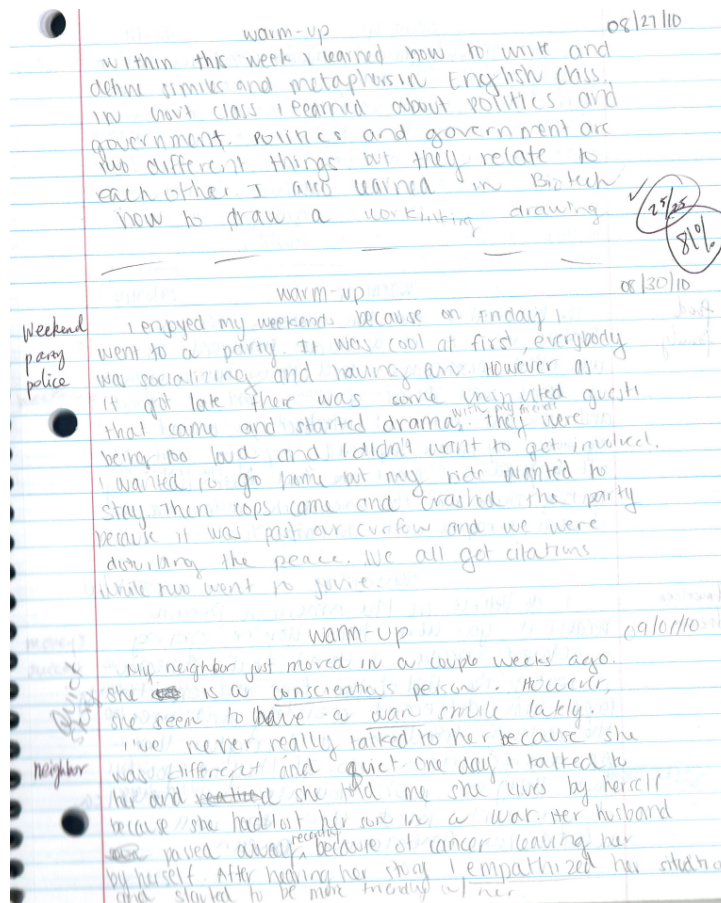 warm-up 08/27/10
within this week I learned how to write and
define similes and metaphors in English class.
in Govt class I learned about politics and
government. Politics and government are
two different things but they relate to
each other I also learned in Biotech
how to draw a working drawing.
✓ 25/25
81%
warm-up 08/30/10
Weekend
party
police
I enjoyed my weekends because on Friday I
went to a party. It was cool at first, everybody
was socializing and having fun. However as
it got late there was some uninvited guests
that came and started drama with my friends. They were
being too loud and I didn't want to get involved.
I wanted to go home but my ride wanted to
stay then cops came and crashed the party
because it was past our curfew and we were
the peace. We all got citations
while two went to juvie.
warm-up 09/01/10
neighbor
My neighbor just moved in a couple weeks ago.
she is a conscientious person. However,
she seem to have a wan smile lately.
I've never really talked to her because she
was different and quiet. One day I talked to
her and she told me she lives by herself
because she had lost her son in a war. Her husband
passed away recently because of cancer leaving her
by herself. After hearing her story I empathized her situation
and started to be more friendly w/ her.